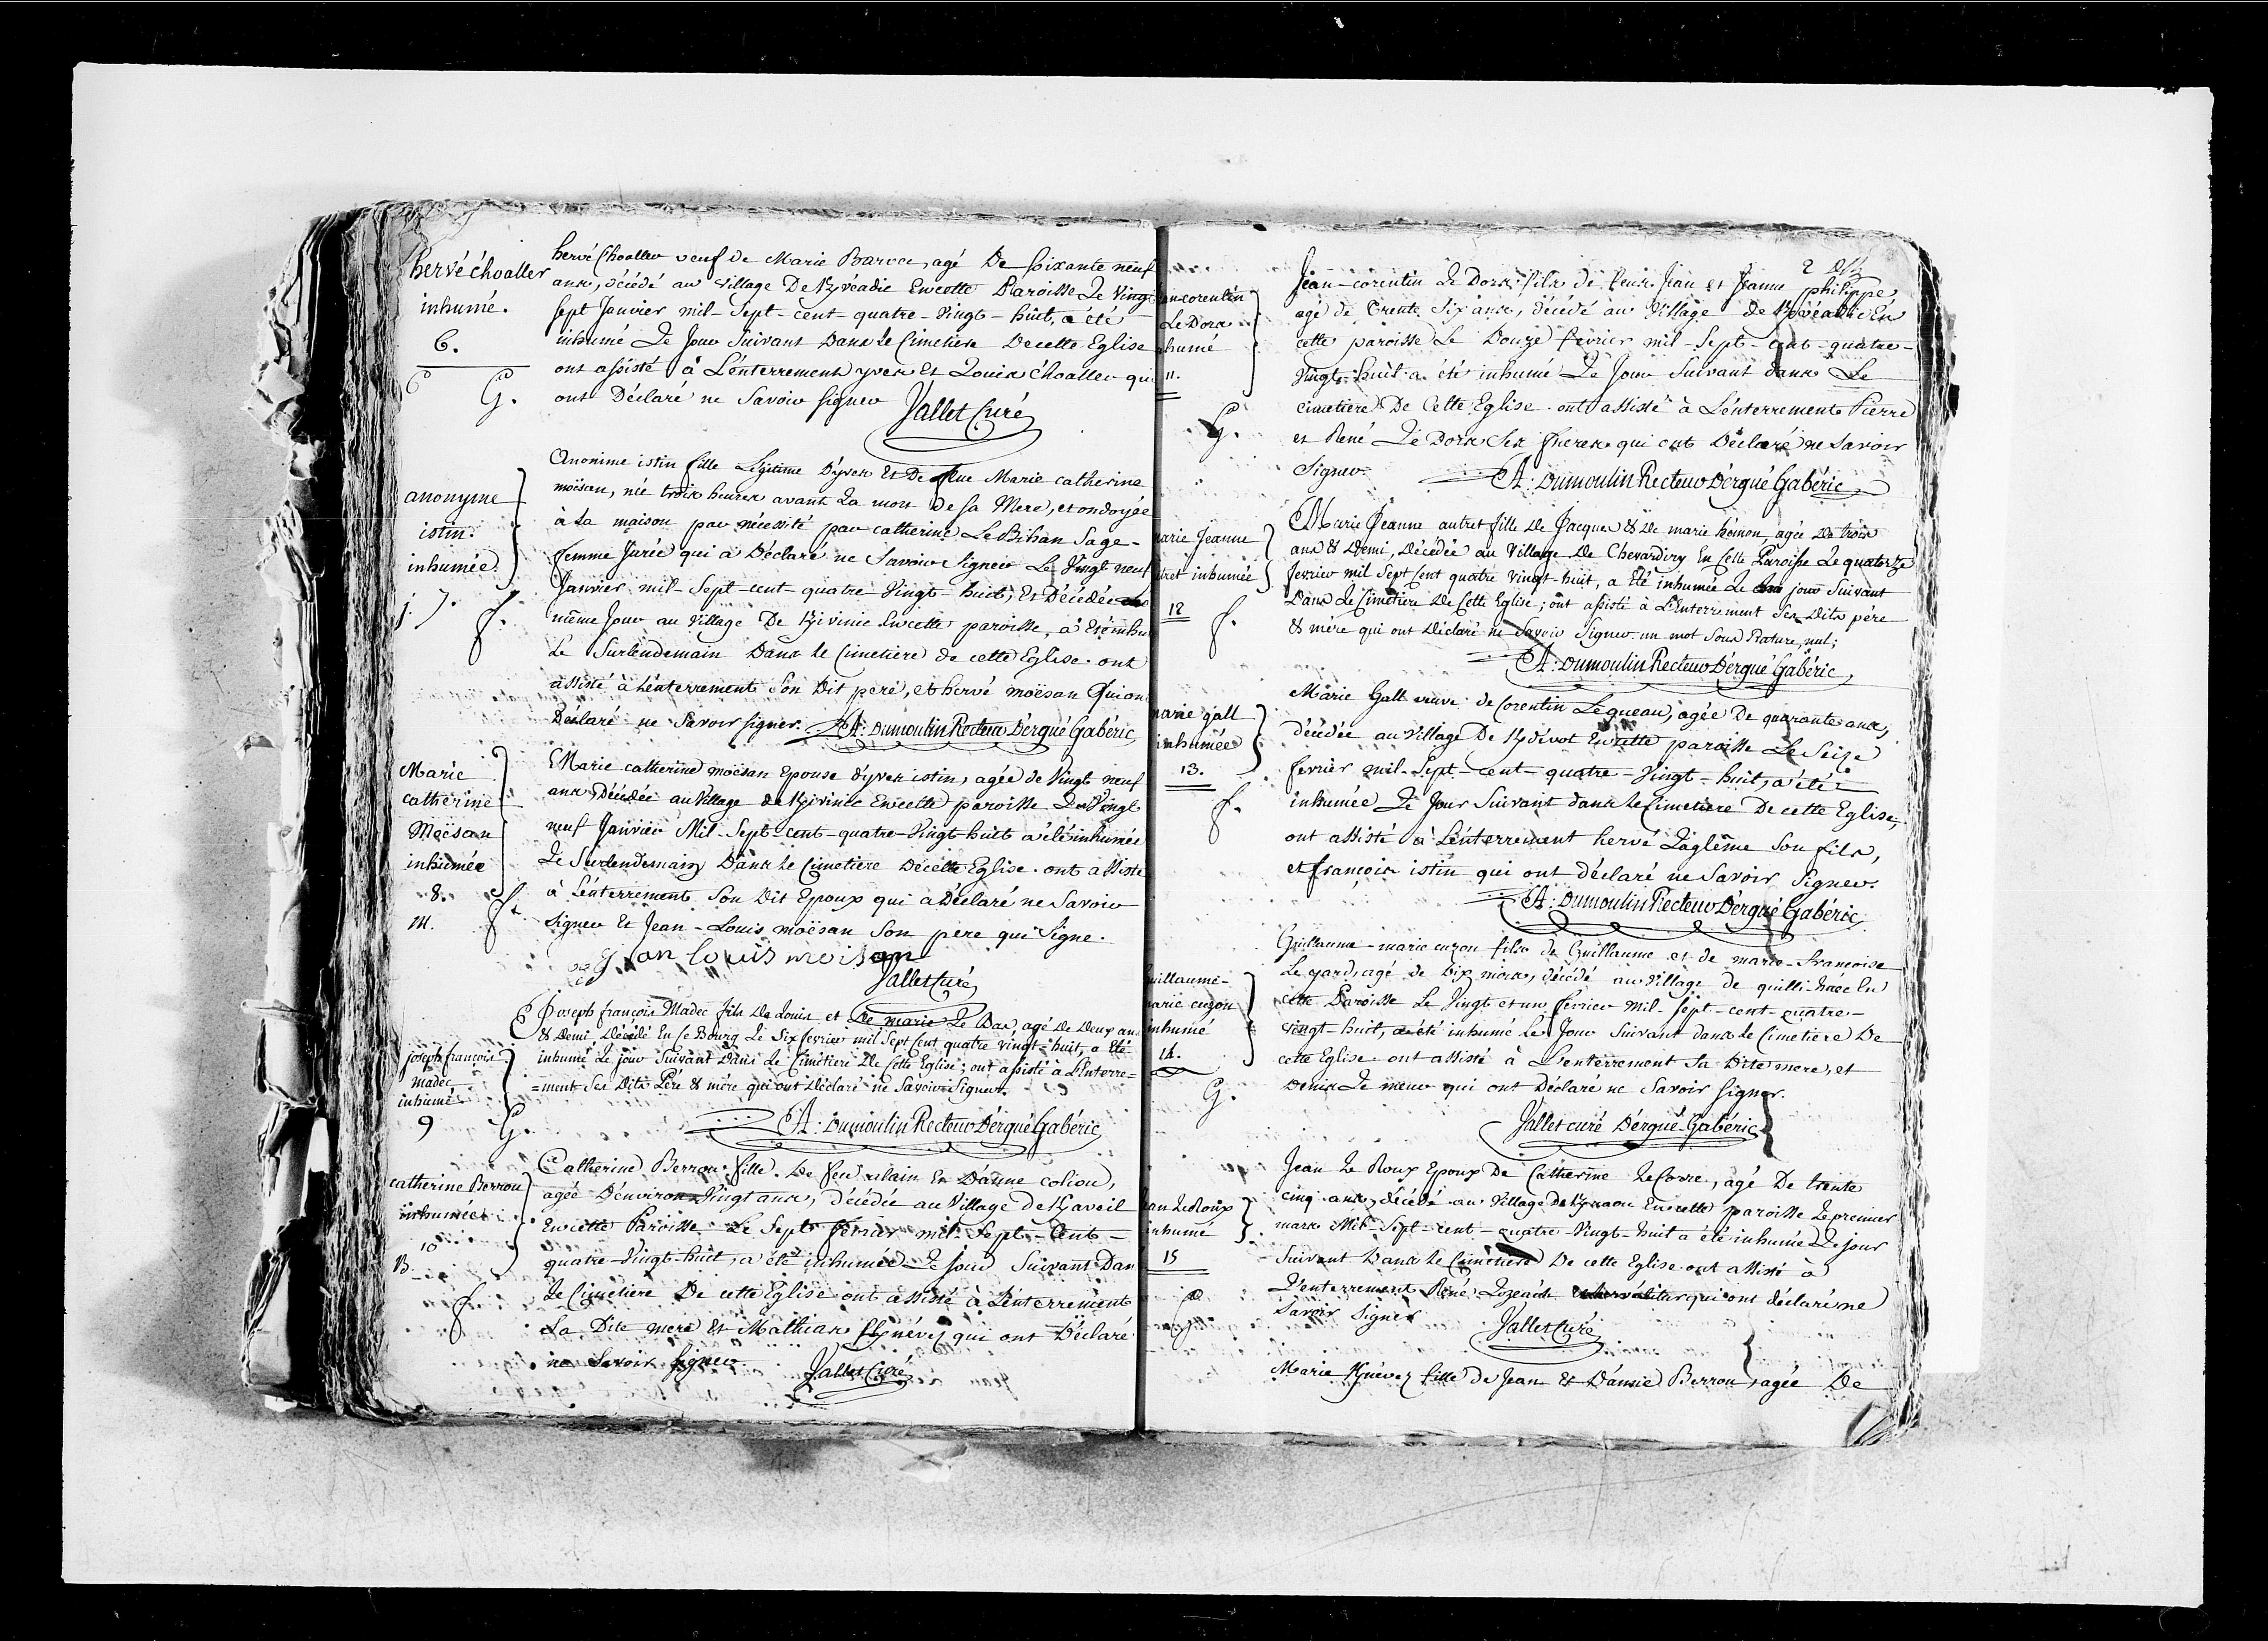 hervé choaller
inhumé.
6.
G.
hervé Choaller veuf de Marie Barré, agé De soixante neuf
ans, décédé au village De Kvéadic Encette Paroisse Le Vingt
sept Janvier mil-Sept-cent-quatre-vingt-huit, a été
inhumé Le Jour Suivant Dans le Cimetiere Decette Eglise
ont assisté à L'enterrement yves Et Louis choaller qui
ont Déclaré ne Savoir signer Jallet Curé
anonyme
istin.
inhumée.
j. 7.
f.
Anonime istin fille Légitime D'yves Et De feue Marie catherine
moësan, née trois heures avant La mort De sa Mere, et ondoyée
à La maison par nécessité par catherine Le Bihan Sage-
femme Jurée qui a Déclaré ne Savoir Signer Le Vingt neuf
Janvier mil-Sept-cent-quatre-Vingt-huit, Et Décédée Le
même Jour au village De Kivinic Encette paroisse, a été inhu
Le Surlendemain Dans le Cimetiere de cette Eglise. ont
assisté à L'enterrement Son Dit pere, et hervé moësan Qui on
Déclaré ne Savoir signer. A: Dumoulin Recteur D'ergué Gabéric
Marie
catherine
Moësan
inhumée
8.
M.
f.
Marie catherine moësan Epouse d'yves istin, agée de Vingt neuf
ans, Décédée au Village de Kivinic Encette paroisse Le Vingt
neuf Janvier Mil-Sept-cent-quatre-Vingt-huit a été inhumée
Le Surlendemain Dans le Cimetiere Decette Eglise. ont assisté
à L'enterrement Son Dit Epoux qui a Déclaré ne Savoir
Signer Et Jean-Louis moësan Son pere qui Signe.
jan louis moisan
Jallet Curé
joseph françois
madec
inhumé
9
G.
Joseph françois Madec fils De Louis et De marie Le Bas, agé De Deux ans
& Demi, Décédé En Ce Bourg Le Six fevrier mil Sept Cent quatre vingt-huit, a Eté
inhumé Le jour Suivant Dans Le Cimetiere De Cette Eglise; ont assisté à L'Enterre=
=ment Ses Dits Pére & mére qui ont Déclaré ne Savoir Signer.
A: Dumoulin Recteur D'ergué Gabéric
catherine Berrou
inhumée
10
B.
f
Catherine Berrou fille De feu alain Et D'anne coliou,
agée D'environ Vingt ans, décédée au Village de Kavoil
Encette Paroisse Le Sept fevrier mil-Sept-Cent-
quatre-Vingt-huit, a été inhumée Le Jour Suivant Dan
Le Cimetiere De cette Eglise ont assisté à L'enterrement
La Dite mere Et Mathias Knévez qui ont Déclaré
ne Savoir signer
Jallet Curé
2
an corentin
Le Dors
humé
11.
G.
Jean-corentin Le Dors fils de feus Jean et Jeanne philippe
agé de Trente Six ans, décédé au Village de Kvéadic En
cette paroisse Le Douze fevrier mil-Sept-cent-quatre-
vingt-huit a été inhumé Le Jour Suivant dans Le
cimetiere De Cette Eglise. ont assisté à L'enterrement Pierre
et René Le Dors Ses freres qui ont Déclaré ne Savoir
Signer.
A: Dumoulin Recteur D'ergué Gabéric
arie Jeanne
tret inhumée
12
f.
Marie Jeanne autret fille De Jacques & De marie hémon, agée De trois
ans & Demi, Décédée au Village De Chevardiry En Cette Paroisse Le quatorze
fevrier mil Sept Cent quatre vingt-huit, a Eté inhumée Le jour Suivant
Dans Le Cimetiere De Cette Eglise; ont assisté à L'Enterrement Ses Dits pére
& mére qui ont Déclaré ne Savoir Signer. un mot Sous Rature, nul;
A: Dumoulin Recteur D'ergué Gabéric
marie gall
inhumée
13.
f.
Marie Gall veuve de Corentin Lequeau, agée De quarante ans,
décédée au village De Kdévot Encette paroisse Le Seize
fevrier mil-Sept-cent-quatre-Vingt-huit, a été
inhumée Le Jour Suivant dans le Cimetiere De cette Eglise,
ont assisté à L'enterrement hervé Laglême Son fils,
et françois istin qui ont déclaré ne Savoir Signer.
A: Dumoulin Recteur D'ergué Gabéric
uillaume-
arie cuzon
inhumé
14.
G.
Guillaume-marie cuzon fils de Guillaume et de marie-françoise
Le gard, agé de Dix mois, décédé au Village de quilli-hüec En
cette Paroisse Le Vingt et un fevrier Mil-Sept-cent-quatre-
vingt-huit, a été inhumé Le Jour Suivant dans Le Cimetiere De
cette Eglise. ont assisté à L'enterrement Sa Dite mere, et
Denis Le meur qui ont Déclaré ne Savoir Signer.
Jallet curé D'ergué-Gabéric
ean Le Roux
inhumé
15
Jean Le Roux Epoux De Catherine Le Corre, agé De trente
cinq ans, décédé au Village De Knaou Encette paroisse Le premier
mars Mil-Sept-cent-quatre-Vingt-huit a été inhumé Le jour
Suivant Dans Le Cimetiere De cette Eglise ont assisté à
L'enterrement René Lozeach qui ont déclaré ne
Savoir Signer
Jallet Curé
Marie Knévez fille de Jean Et D'annie Berrou, agée De